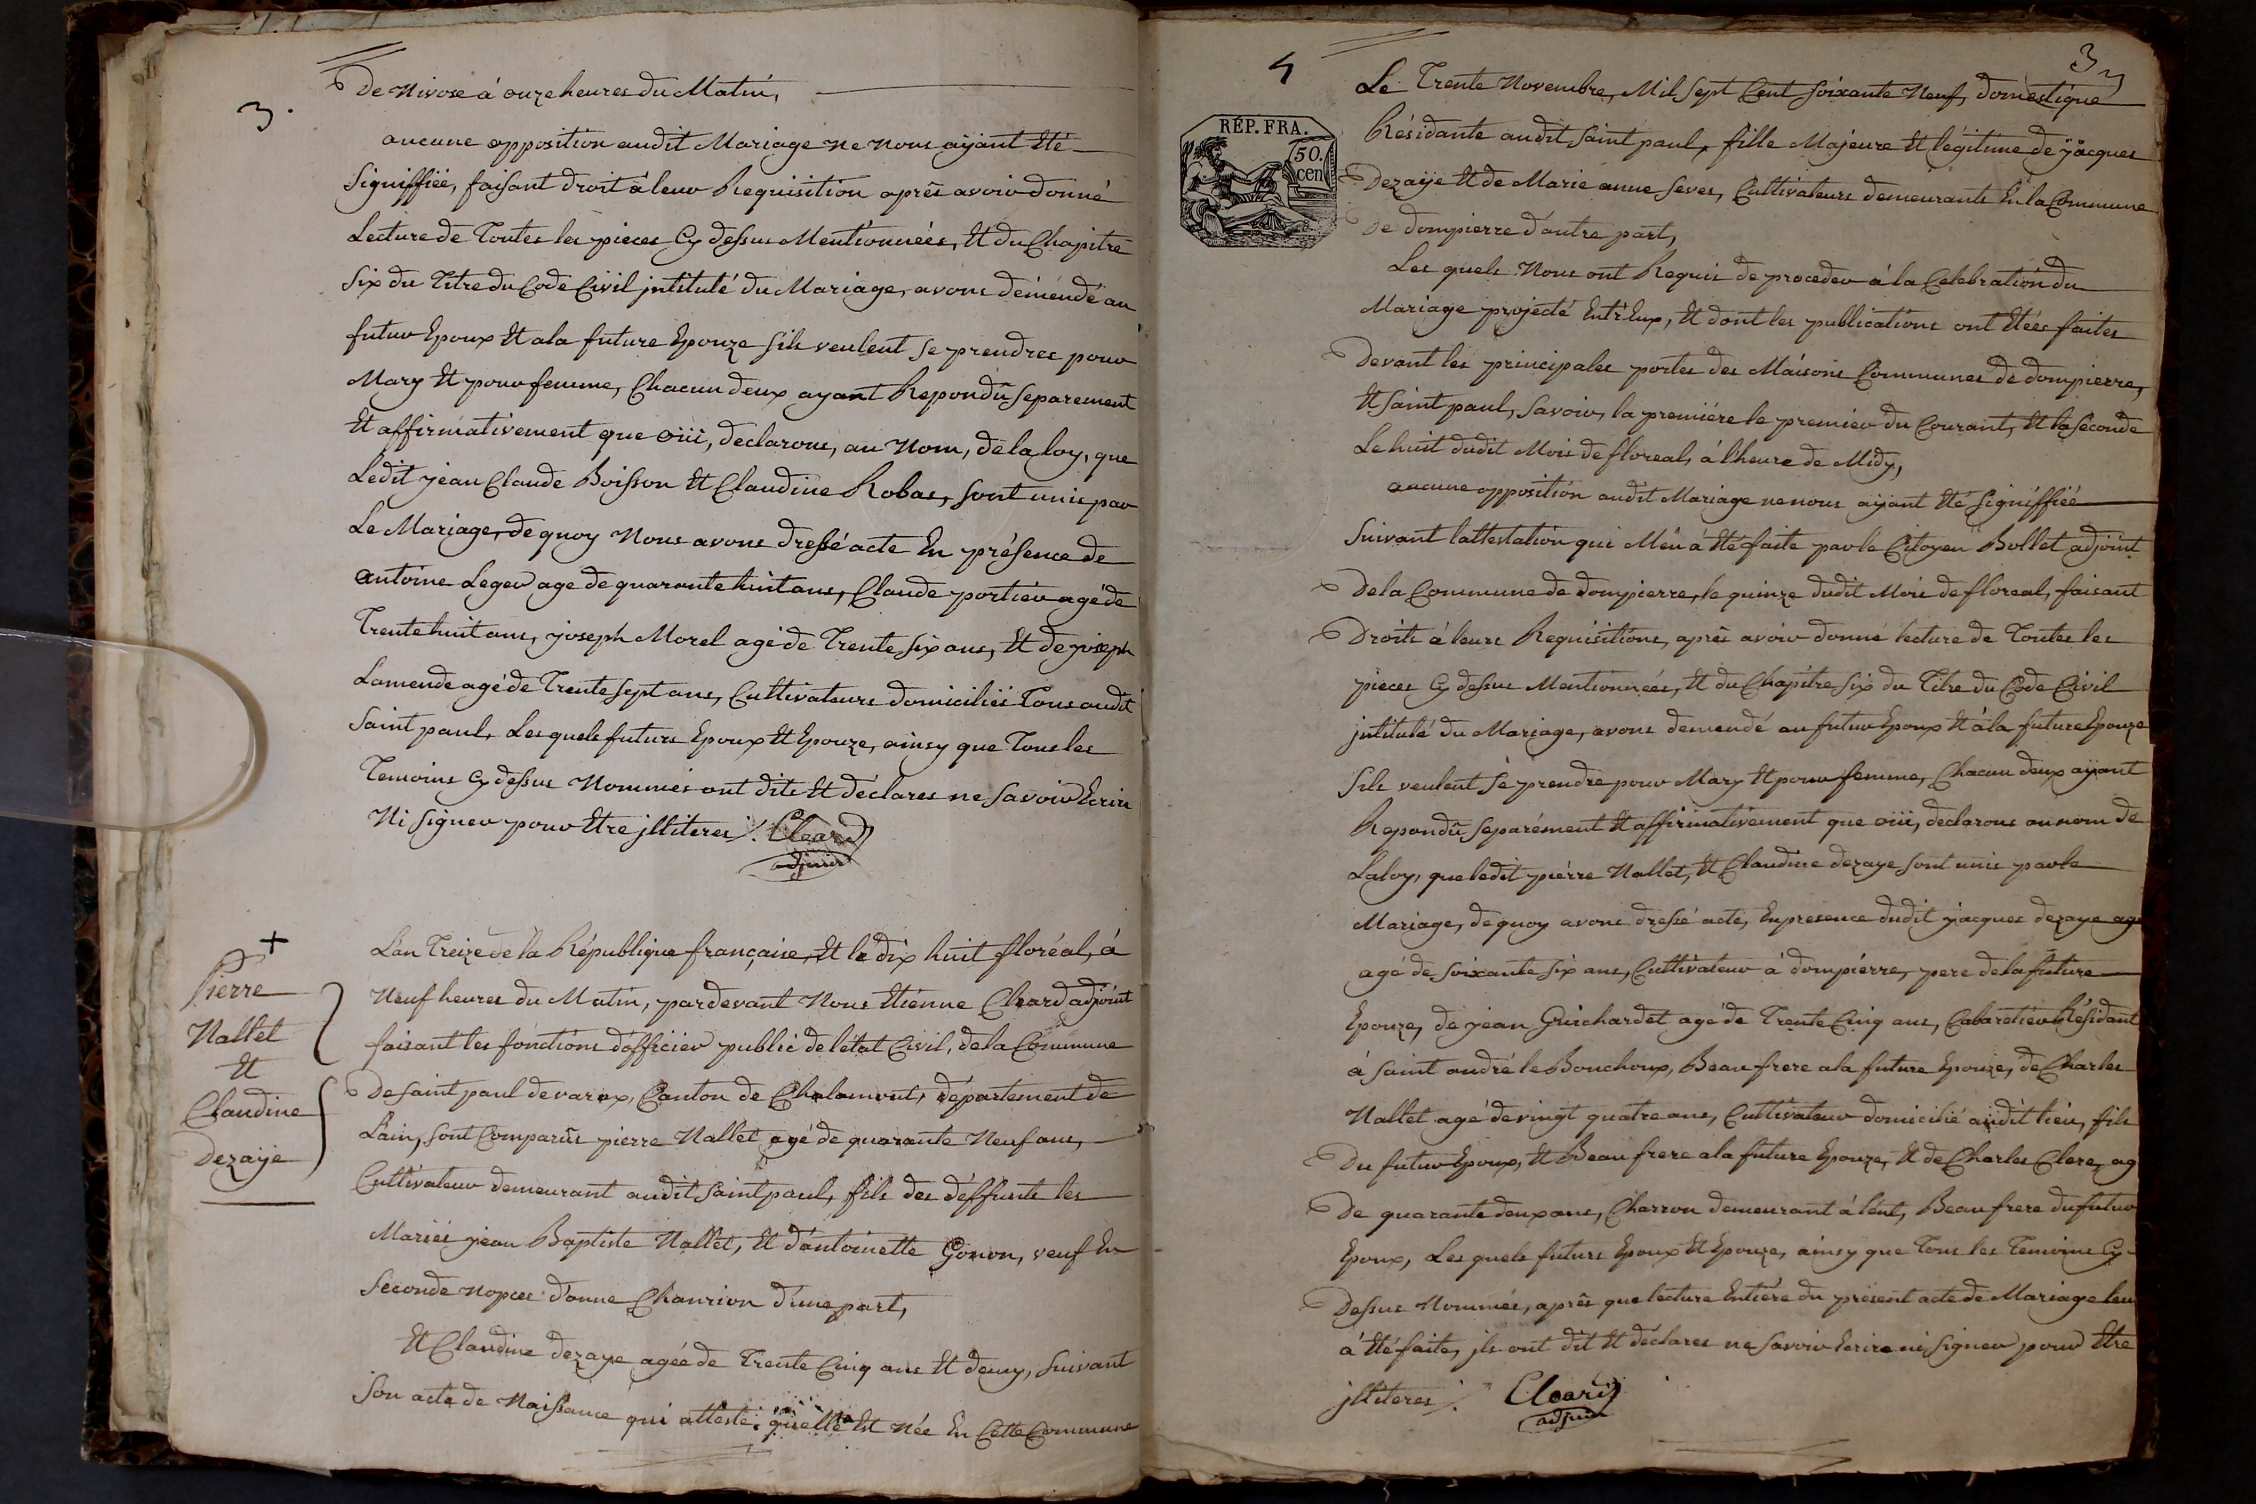 3.
De Nivose à onze heures du Matin,
aucune opposition audit Mariage ne nous aÿant Eté
Signiffiée, faisant droit à leur Requisition aprês avoir donné
Lecture de Toutes les pieces Cy dessus Mentionnées, Et du Chapitre
Six du Titre du Code Civil jntitulé du Mariage, avons demendé au
futur Epoux Et a la future Epouze sils veulent se prendres pour
Mary Et pour femme, Chacun deux ayant Repondû Separement
Et affirmativement que oüi, declarons, au Nom, de la loy, que
Ledit jean Claude Boisson Et Claudine Robas, sont unis par
Le Mariage, de quoy Nous avons dressé acte En présence de
antoine Leger age de quarante huit ans, Claude portier agé de
Trente huit ans, joseph Morel agé de Trente six ans, Et de joseph
Lamende agé de Trente sept ans, Cultivateurs domiciliés Tous audit
Saint paul, Les quels futurs Epoux Et Epouze, ainsy que Tous les
Temoins Cy dessus Nommés ont dits Et declares ne savoir Ecrire
Ni signer pour Etre jlliteres ./. Cleard
adjoint
+
Pierre
Nallet
Et
Claudine
Dezaÿe
L'an Treize de la République française, Et le dix huit floréal, à
Neuf heures du Matin, pardevant Nous Etiénne Cleard adjoint
faisant les fonctions d'officier public de l'état Civil, de la Commune
De saint paul de varax, Canton de Chalamont, département de
L'ain, sont Comparûs pierre Nallet agé de quarante Neuf ans,
Cultivateur demeurant audit saint paul, fils des déffunts les
Mariés jean Baptiste Nallet, Et d'antoinette Gonon, veuf En
Seconde nopces d'anne Chanrion d'une part,
Et Claudine dezaye agée de Trente Cinq ans Et demy, Suivant
Son acte de Naissance qui atteste, qu'elle Est née En Cette Commune
4
3
RÉP. FRA.
50.
cen
Le Trente Novembre, Mil sept Cent soixante Neuf, domestique
Résidante audit saint paul, fille Majeure Et légitime de jacques
Dezaÿe Et de Marie anne seves, Cultivateurs demeurants En la Commune
De dompierre d'autre part,
Les quels Nous ont Requis de proceder à la Celebration du
Mariage projecté Entr'Eux, Et dont les publications ont Etées faites
Devant les principales portes des Maisons Communes de dompierre,
Et saint paul, Savoir, la premiére le premier du Courant, Et la seconde
Le huit dudit Mois de floreal, à l'heure de Midy,
aucune opposition audit Mariage ne nous aÿant Eté signiffiée
Suivant l'attestation qui M'en à Eté faite par le Citoyen Bollet adjoint
De la Commune de dompierre, le quinze dudit Mois de floreal, faisant
Droits à leurs Requisitions, aprês avoir donné lecture de Toutes les
pieces Cy dessus Mentionnées, Et du Chapitre six du Titre du Code Civil
jntitulé du Mariage, avons demendé au futur Epoux Et à la future Epouze
Sils veulent se prendre pour Mary Et pour femme, Chacun deux aÿant
Repondû separément Et affirmativement que oüi, declarons au nom de
La loy, que ledit pierre Nallet, Et Claudine dezaye sont unis par le
Mariage, de quoy avons dressé acte, En presence dudit jacques dezaye age
agé de soixante six ans, Cultivateur à dompierre, pere de la future
Epouze, de jean Guichardet agé de Trente Cinq ans, Cabaretier Résidant
à saint andré le Bouchoux, Beau frere a la future Epouze, de Charles
Nallet agé de vingt quatre ans, Cultivateur domicilié audit lieu, fils
Du futur Epoux, Et Beau frere a la future Epouze, Et de Charles Clere, ag
De quarante deux ans, Charron demeurant à lent, Beau frere du futur
Epoux, Les quels futurs Epoux Et Epouze, ainsy que Tous les Temoins Cy
Dessus Nommés, aprês que lecture Entiére du présent acte de Mariage leu
à Eté faite, jls ont dit Et declares ne savoir Ecrire ni signer pour Etre
jlliteres ./. Cleard
adjoint